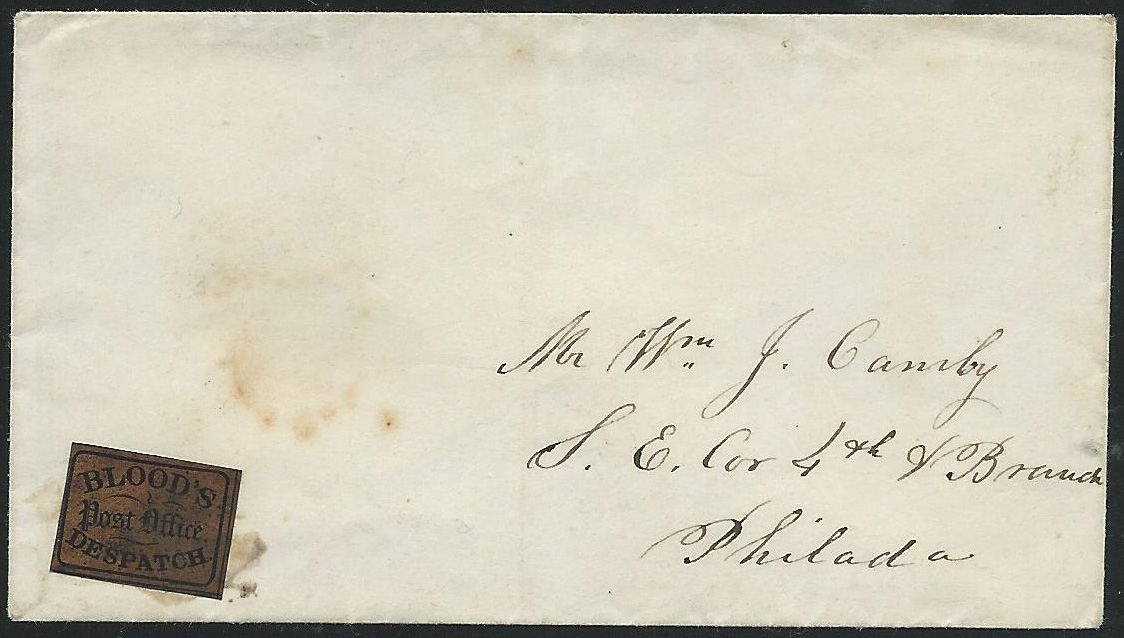 Mr Wm J. Camby
S. E. Cor 4th & Branch
Philada
BLOOD'S
Post Office
DESPATCH